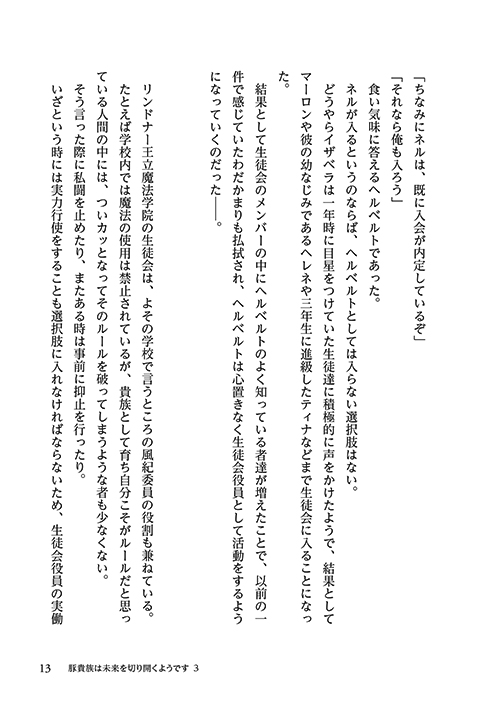 「ちなみにネルは、既に入会が内定しているぞ」
「それなら俺も入ろう」
食い気味に答えるヘルベルトであった。
ネルが入るというのならば、ヘルベルトとしては入らない選択肢はない。
どうやらイザベラは一年時に目星をつけていた生徒達に積極的に声をかけたようで、結果として
マーロンや彼の幼なじみであるヘレネや三年生に進級したティナなどまで生徒会に入ることになっ
た。
結果として生徒会のメンバーの中にヘルベルトのよく知っている者達が増えたことで、以前の一
件で感じていたわだかまりも払拭され、ヘルベルトは心置きなく生徒会役員として活動をするよう
になっていくのだった――。
リンドナー王立魔法学院の生徒会は、よその学校で言うところの風紀委員の役割も兼ねている。
たとえば学校内では魔法の使用は禁止されているが、貴族として育ち自分こそがルールだと思っ
ている人間の中には、ついカッとなってそのルールを破ってしまうような者も少なくない。
そう言った際に私闘を止めたり、またある時は事前に抑止を行ったり。
いざという時には実力行使をすることも選択肢に入れなければならないため、生徒会役員の実働
13 豚貴族は未来を切り開くようです 3